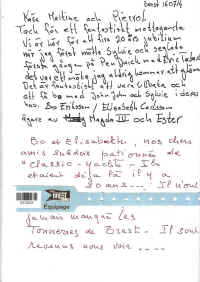 Brest 16/07/4
Käre Meltine och Pierrot
Tack för ett fantastiskt mottagande
Vi är här för att fira 20 års jubilium
när jag först mötte Sylvie och seglade
första gången på Pen Duick med Eric Tabarly
det var ett möte jag aldrig kommer att glömma
Det är fantastiskt att vara tillbaka och
att få bo med John-John och Sylvie i deras
hus. Bo Eriksson / Elisabeth Carlsson
ägare av Magda III och Ester
Bo et Elisabeth, nos chers
amis suédois patrons de
"classic-yachts - Ils
étaient déjà là il y a
20 ans... Il n'ont
jamais manqué les
Tonnerres de Brest - Ils sont
revenus nous voir ....
BREST
Equipage